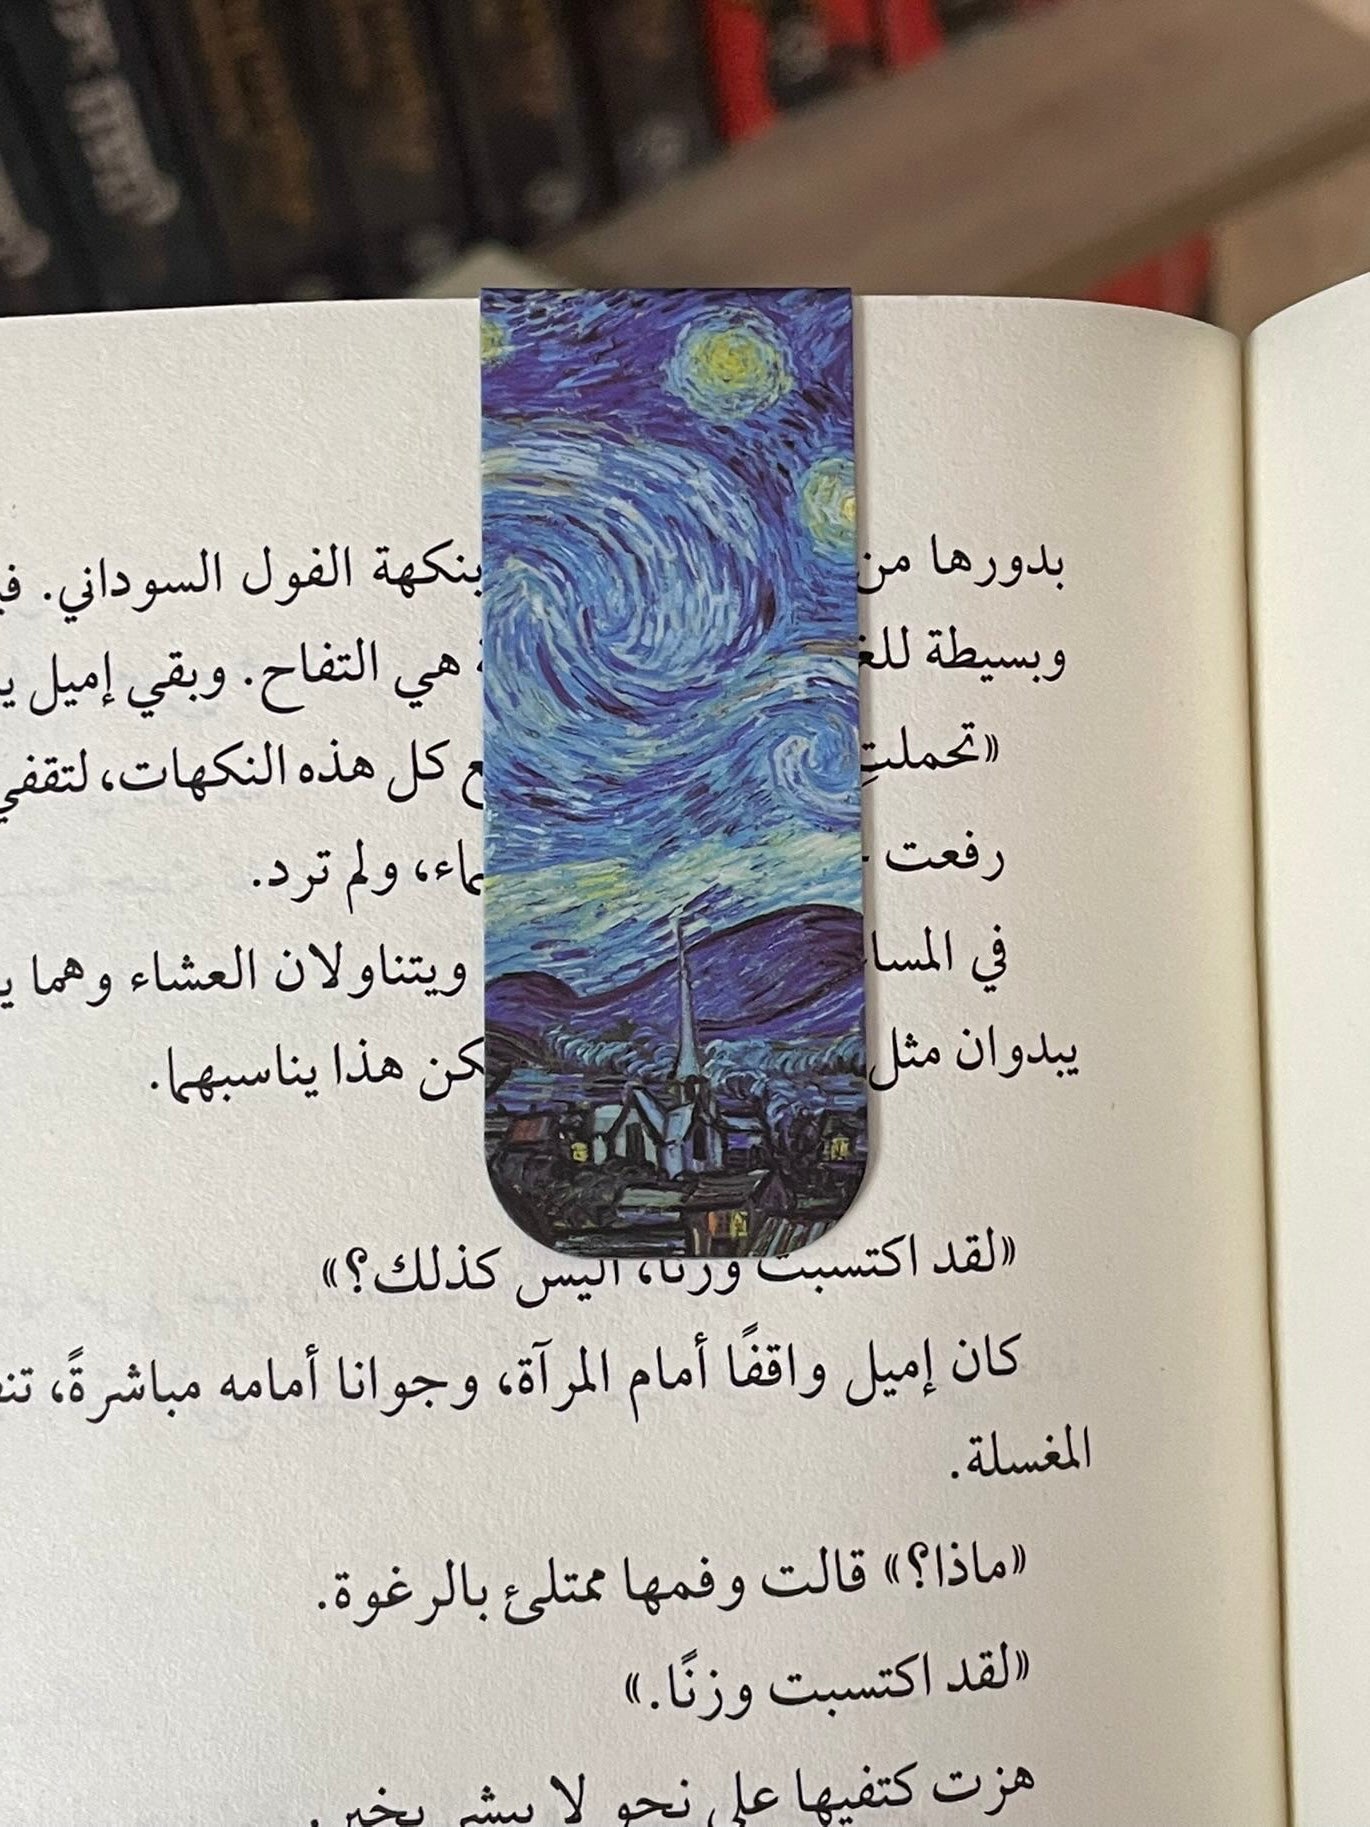 بدورها من بنكهة الفول السوداني.
وبسيطة هي التفاح. وبقي إميل
«تحملتِ كل هذه النكهات، لتقفي
رفعت ولم ترد.
في ويتناولان العشاء وهما
يبدوان مثل هذا يناسبهما.
«لقد اكتسبت وزنًا، أليس كذلك؟»
كان إميل واقفًا أمام المرآة، وجوانا أمامه مباشرةً،
المغسلة.
«ماذا؟» قالت وفمها ممتلئ بالرغوة.
«لقد اكتسبت وزنًا.»
هزت كتفيها على نحو لا يبشر بخير.